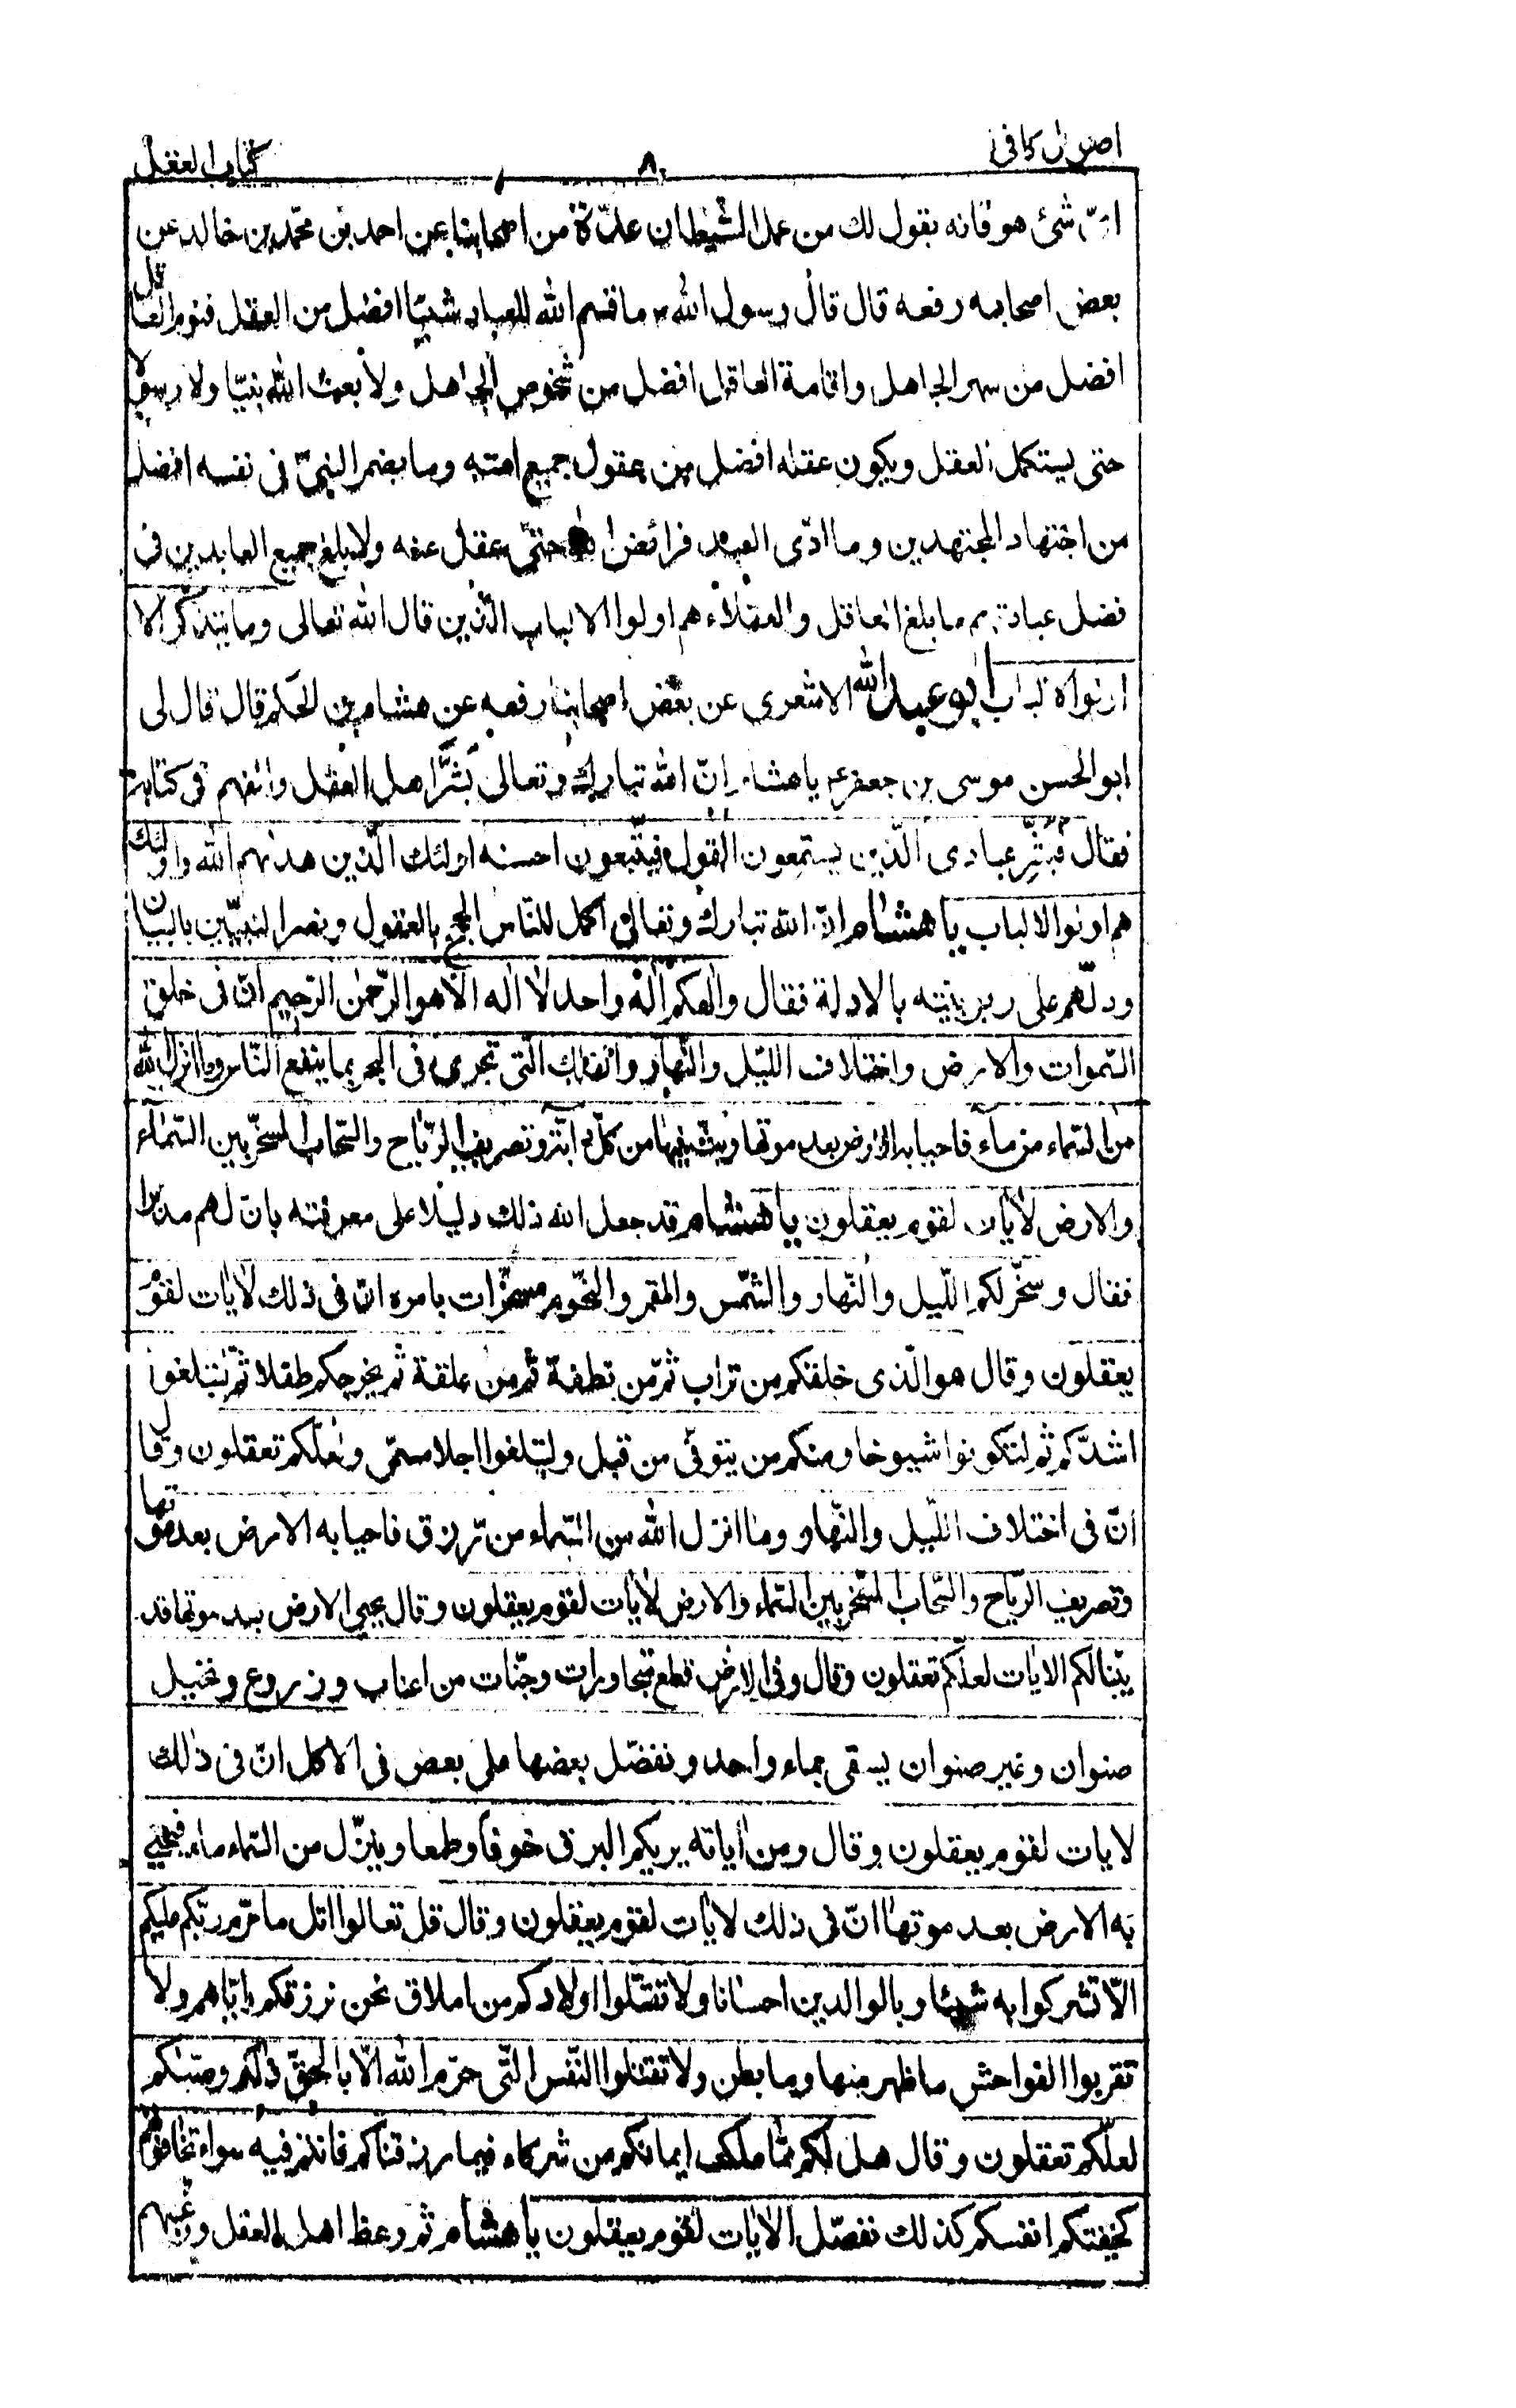 اصول کافی ٨ کتاب العقل
ایّ شئ هو فانه یقول لك من عمل الشیطان عدّة من اصحابنا عن احمد بن محمّد بن خالد عن
بعض اصحابه رفعه قال قال رسول الله ص ما قسم الله للعباد شیئا افضل من العقل فنوم العاقل
افضل من سهر الجاهل واقامة العاقل افضل من شخوص الجاهل ولا بعث الله نبیّا ولا رسولا
حتی یستکمل العقل ویکون عقله افضل من عقول جمیع امته وما یضمر النبیّ فی نفسه افضل
من اجتهاد المجتهدین وما ادّی العبد فرائض الله حتی عقل عنه ولا بلغ جمیع العابدین فی
فضل عبادتهم ما بلغ العاقل والعقلاء هم اولوا الالباب الّذین قال الله تعالی وما یتذکّر الا
اولوا الالباب ابو عبد الله الاشعری عن بعض اصحابنا رفعه عن هشام بن الحکم قال قال لی
ابو الحسن موسی بن جعفر ع یا هشام انّ الله تبارك وتعالی بَشَّرَ اهل العقل والفهم فی کتابه
فقال فَبَشِّر عبادی الّذین یستمعون القول فیتّبعون احسنه اولئك الّذین هدیهم الله واولئك
هم اولوا الالباب یا هشام انّ الله تبارك وتعالی اکمل للنّاس الحجج بالعقول ونصر النبیّین بالبیان
ودلّهم علی ربوبیّته بالادلة فقال والهکم اله واحد لا اله الّا هو الرّحمن الرّحیم انّ فی خلق
السّموات والارض واختلاف اللیّل والنّهار والفلك الّتی تجری فی البحر بما ینفع النّاس وما انزل الله
من السّماء من مآء فاحیا به الارض بعد موتها وبثّ فیها من کلّ دابّة وتصریف الرّیاح والسّحاب المسخّر بین السّمآء
والارض لآیات لقوم یعقلون یا هشام قد جعل الله ذلك دلیلا علی معرفته بانّ لهم مدبّرا
فقال وسخّر لکم اللّیل والنّهار والشّمس والقمر والنّجوم مسخّرات بامره انّ فی ذلك لآیات لقوم
یعقلون وقال هو الّذی خلقکم من تراب ثمّ من نطفة ثمّ من علقة ثم یخرجکم طفلا ثمّ لتبلغوا
اشدّکم ثم لتکونوا شیوخا ومنکم من یتوفّی من قبل ولتبلغوا اجلا مسمّی ولعلّکم تعقلون وقال
انّ فی اختلاف اللّیل والنّهار وما انزل الله من السّماء من رزق فاحیا به الارض بعد موتها
وتصریف الرّیاح والسّحاب المسخّر بین السّماء والارض لآیات لقوم یعقلون وقال یحیی الارض بعد موتها قد
بیّنا لکم الایات لعلّکم تعقلون وقال وفی الارض قطع متجاورات وجنّات من اعناب وزروع ونخیل
صنوان وغیر صنوان یسقی بماء واحد ونفضّل بعضها علی بعض فی الاکل انّ فی ذلك
لایات لقوم یعقلون وقال ومن آیاته یریکم البرق خوفا وطمعا وینزّل من السّماء ماء فیحیی
به الارض بعد موتها انّ فی ذلك لآیات لقوم یعقلون وقال قل تعالوا اتل ما حرّم ربّکم علیکم
الّا تشرکوا به شیئا وبالوالدین احسانا ولا تقتلوا اولادکم من املاق نحن نرزقکم وایّاهم ولا
تقربوا الفواحش ما ظهر منها وما بطن ولا تقتلوا النّفس الّتی حرّم الله الّا بالحقّ ذلکم وصّیٰکم
لعلّکم تعقلون وقال هل لکم ممّا ملکت ایمانکم من شرکاء فیما رزقناکم فانتم فیه سواء تخافونهم
کخیفتکم انفسکم کذلك نفصّل الآیات لقوم یعقلون یا هشام ثم وعظ اهل العقل ورغّبهم